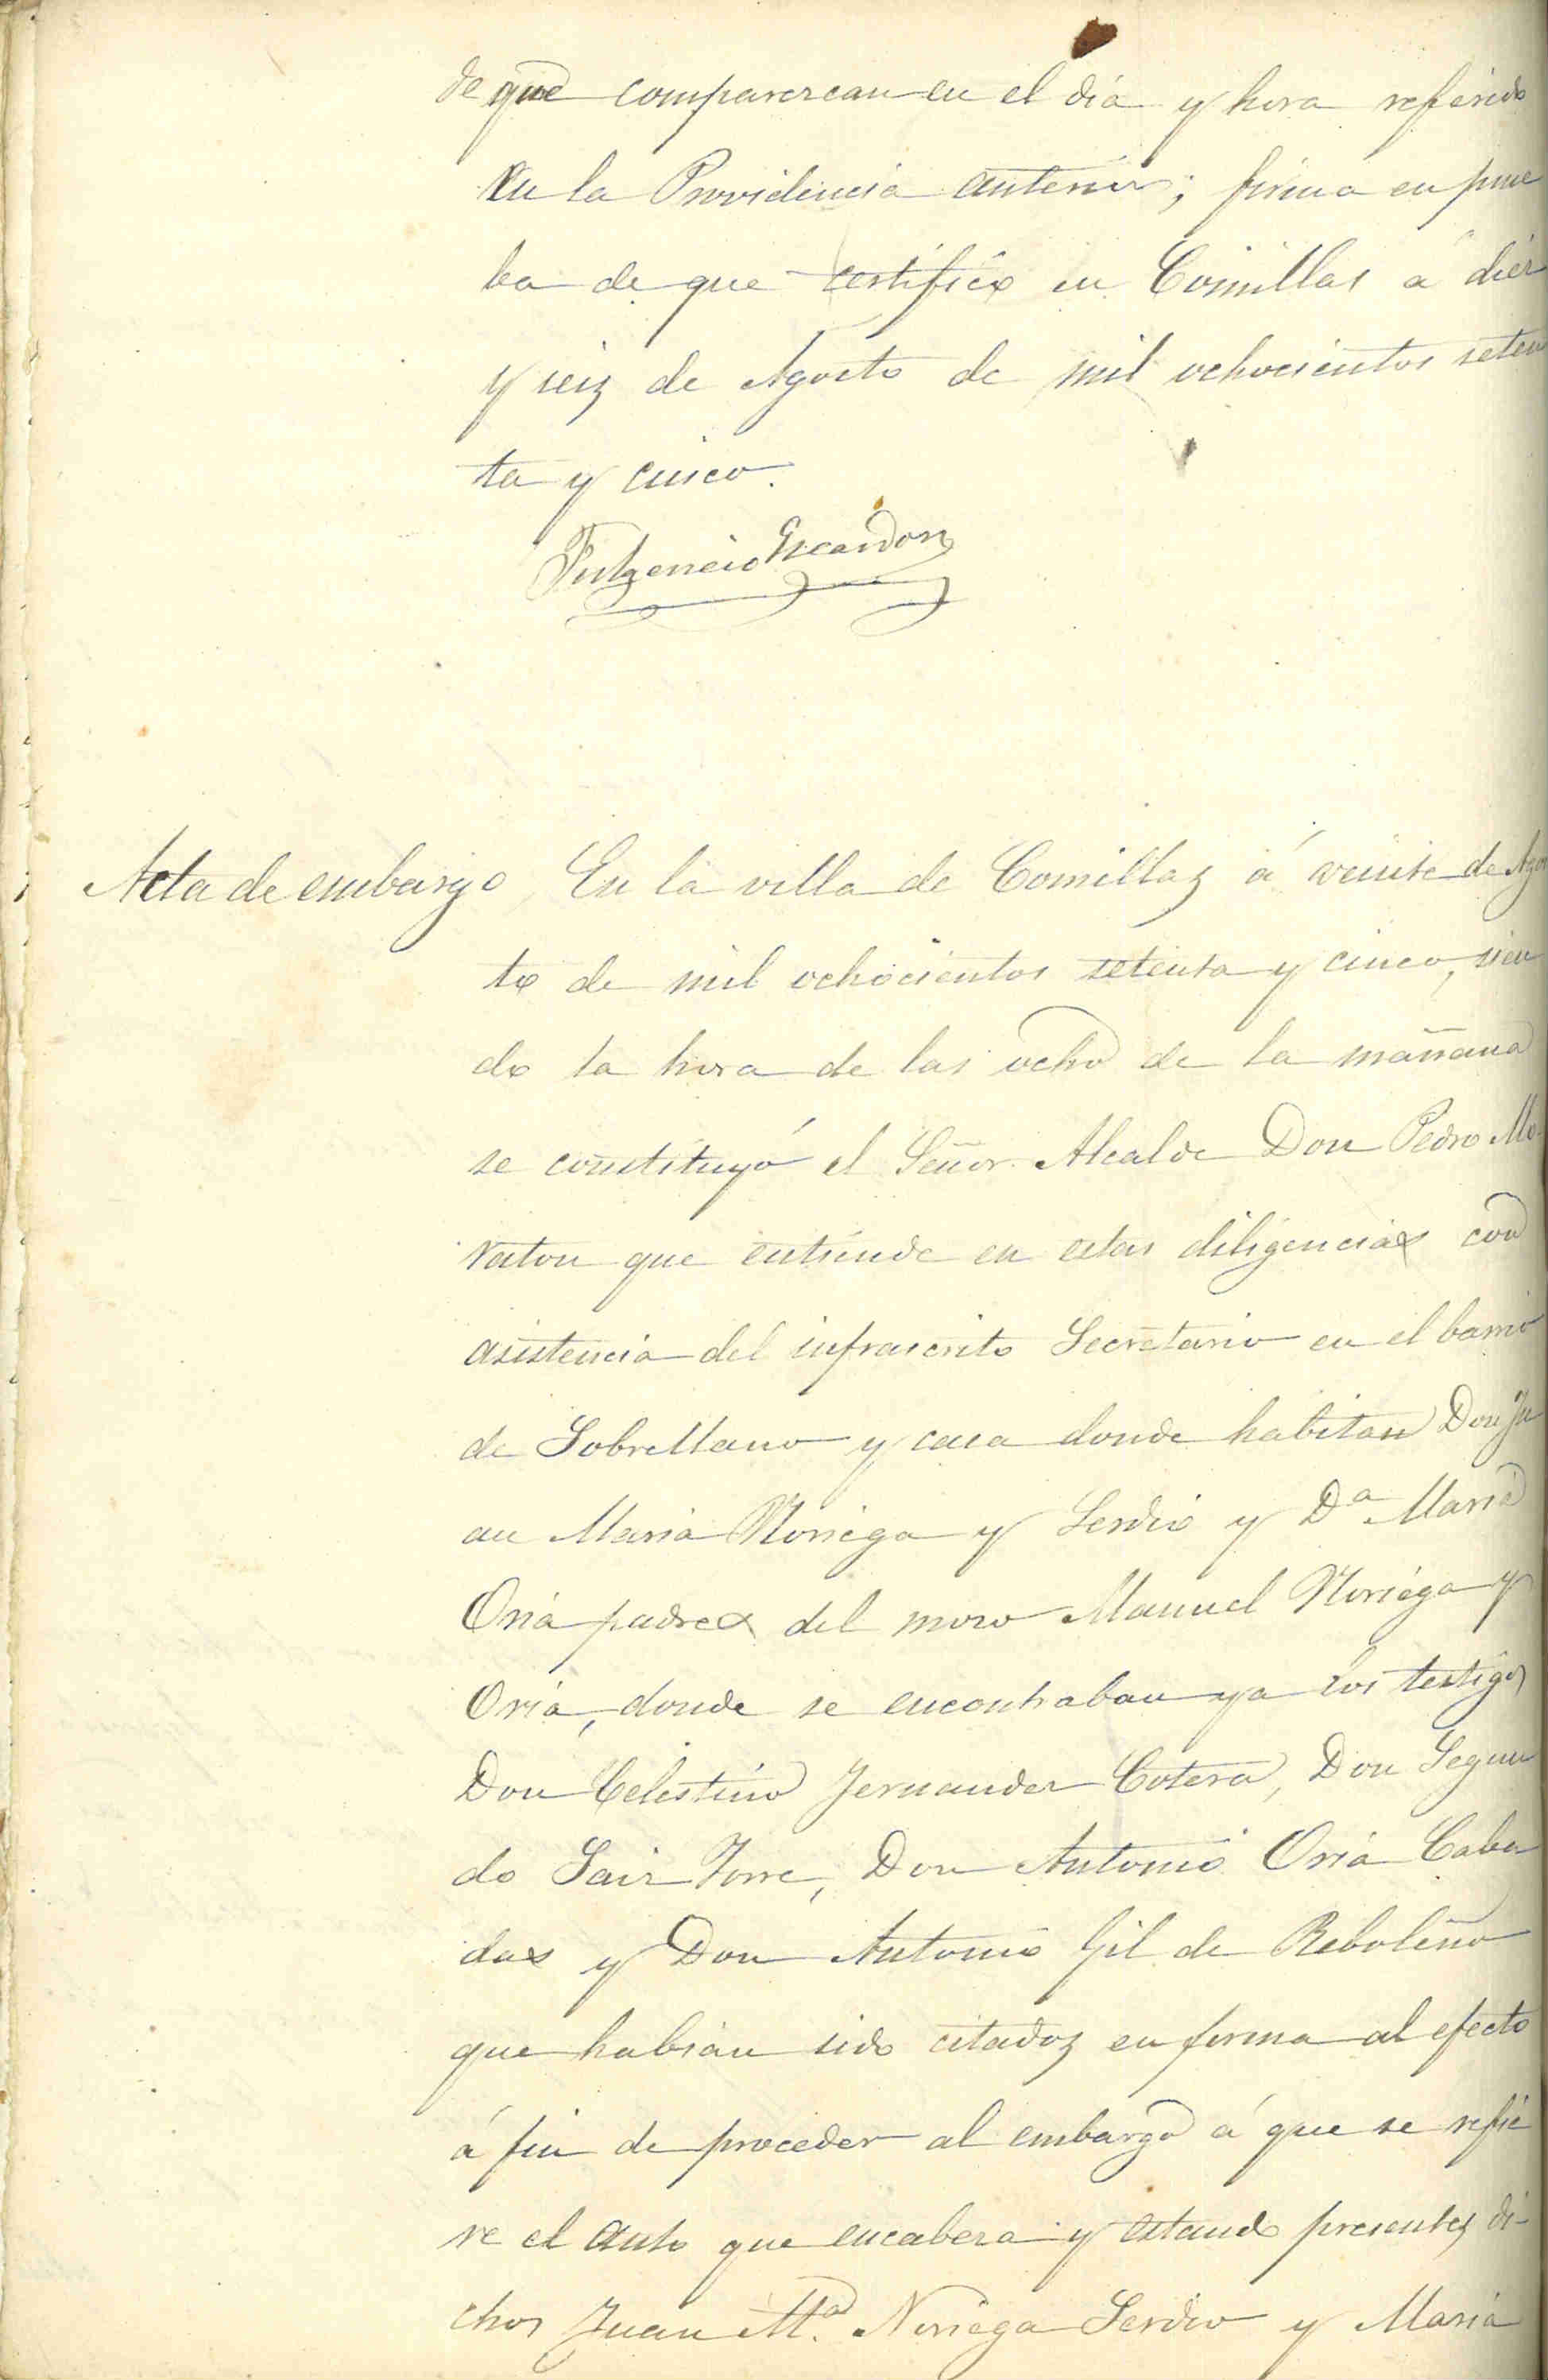 de que comparezcan en el dia y hora referido
en la Providencia anterior; firma en prue
ba de que certifico en Comillas a diez
y seiz de Agosto de mil ochocientos seten
ta y cinco.
Fulgencio Escandon
Acta de embargo En la villa de Comillaz á veinte de Agos
to de mil ochocientos setenta y cinco, sien
do la hora de las ocho de la mañana
se constituyó el Señor Alcalde Don Pedro Mo
raton que entiende en estas diligencias con
asistencia del infrascrito Secretario en el barrio
de Sobrellano y casa donde habitan Don Ju
an Maria Noriega y Serdio y Dª Maria
Oria padres del mozo Manuel Noriega y
Oria, donde se encontraban ya los testigos
Don Celestino Fernandez Cotera, Don Segun
do Saiz Torre, Don Antonio Oria Caba
das y Don Antonio Gil de Reboleño
que habian sido citadoz en forma al efecto
á fin de proceder al embargo á que se refie
re el auto que encabeza y estando presentez di-
chos Juan Mª. Noriega Serdio y Maria